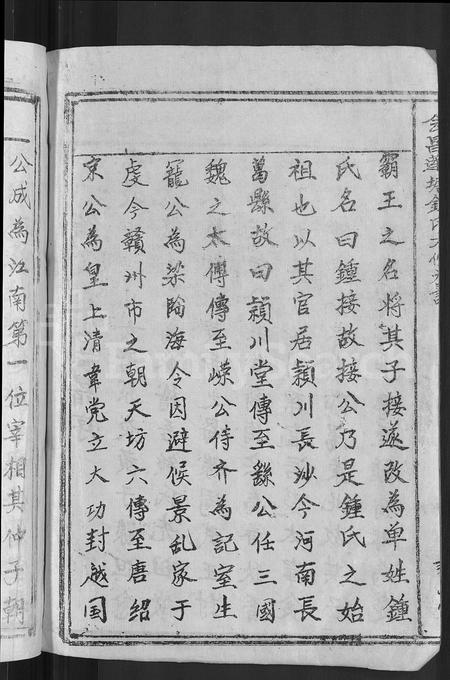 霸王之名将其子接遂改為单姓鍾
氏名曰鍾接故接公乃是鍾氏之始
祖也以其官居颍川長沙今河南長
萬縣故曰颍川堂傳至繇公任三國
魏之太傅傳至嵘公侍齐為記室生
寵公為梁临海令因避候景乱家于
虔今贛州市之朝天坊六傳至唐紹
京公為皇上清韋党立大功封越国
公成為江南第一位宰相其仲子朝